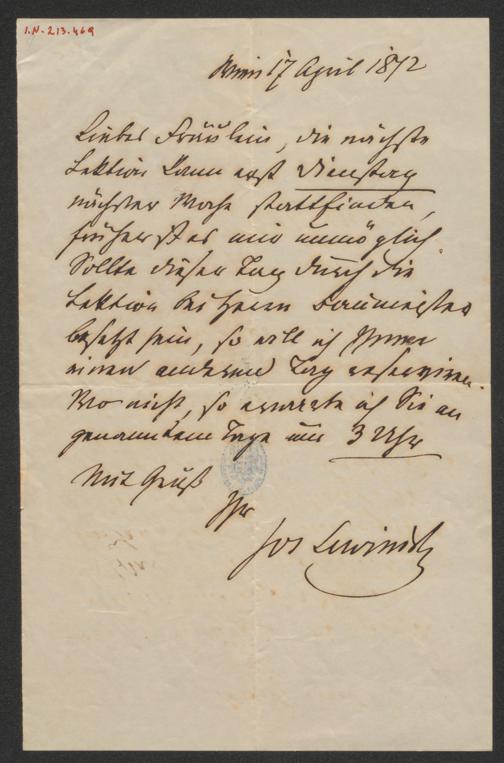 I.N.-213.469
Wien 17 April 1872
Liebes Fräulein, die nächste
Lektion kann erst Dienstag
nächster Woche stattfinden,
früher ist es mir unmöglich.
Sollte dieser Tag durch die
Lektion bei Herrn Baumeister
besetzt sein, so will ich Ihnen
einen anderen Tag reserviren.
Wo nicht, so erwarte ich Sie am
genannten Tage um 3 Uhr
Mit Gruß
Ihr
Jos Lewinsky